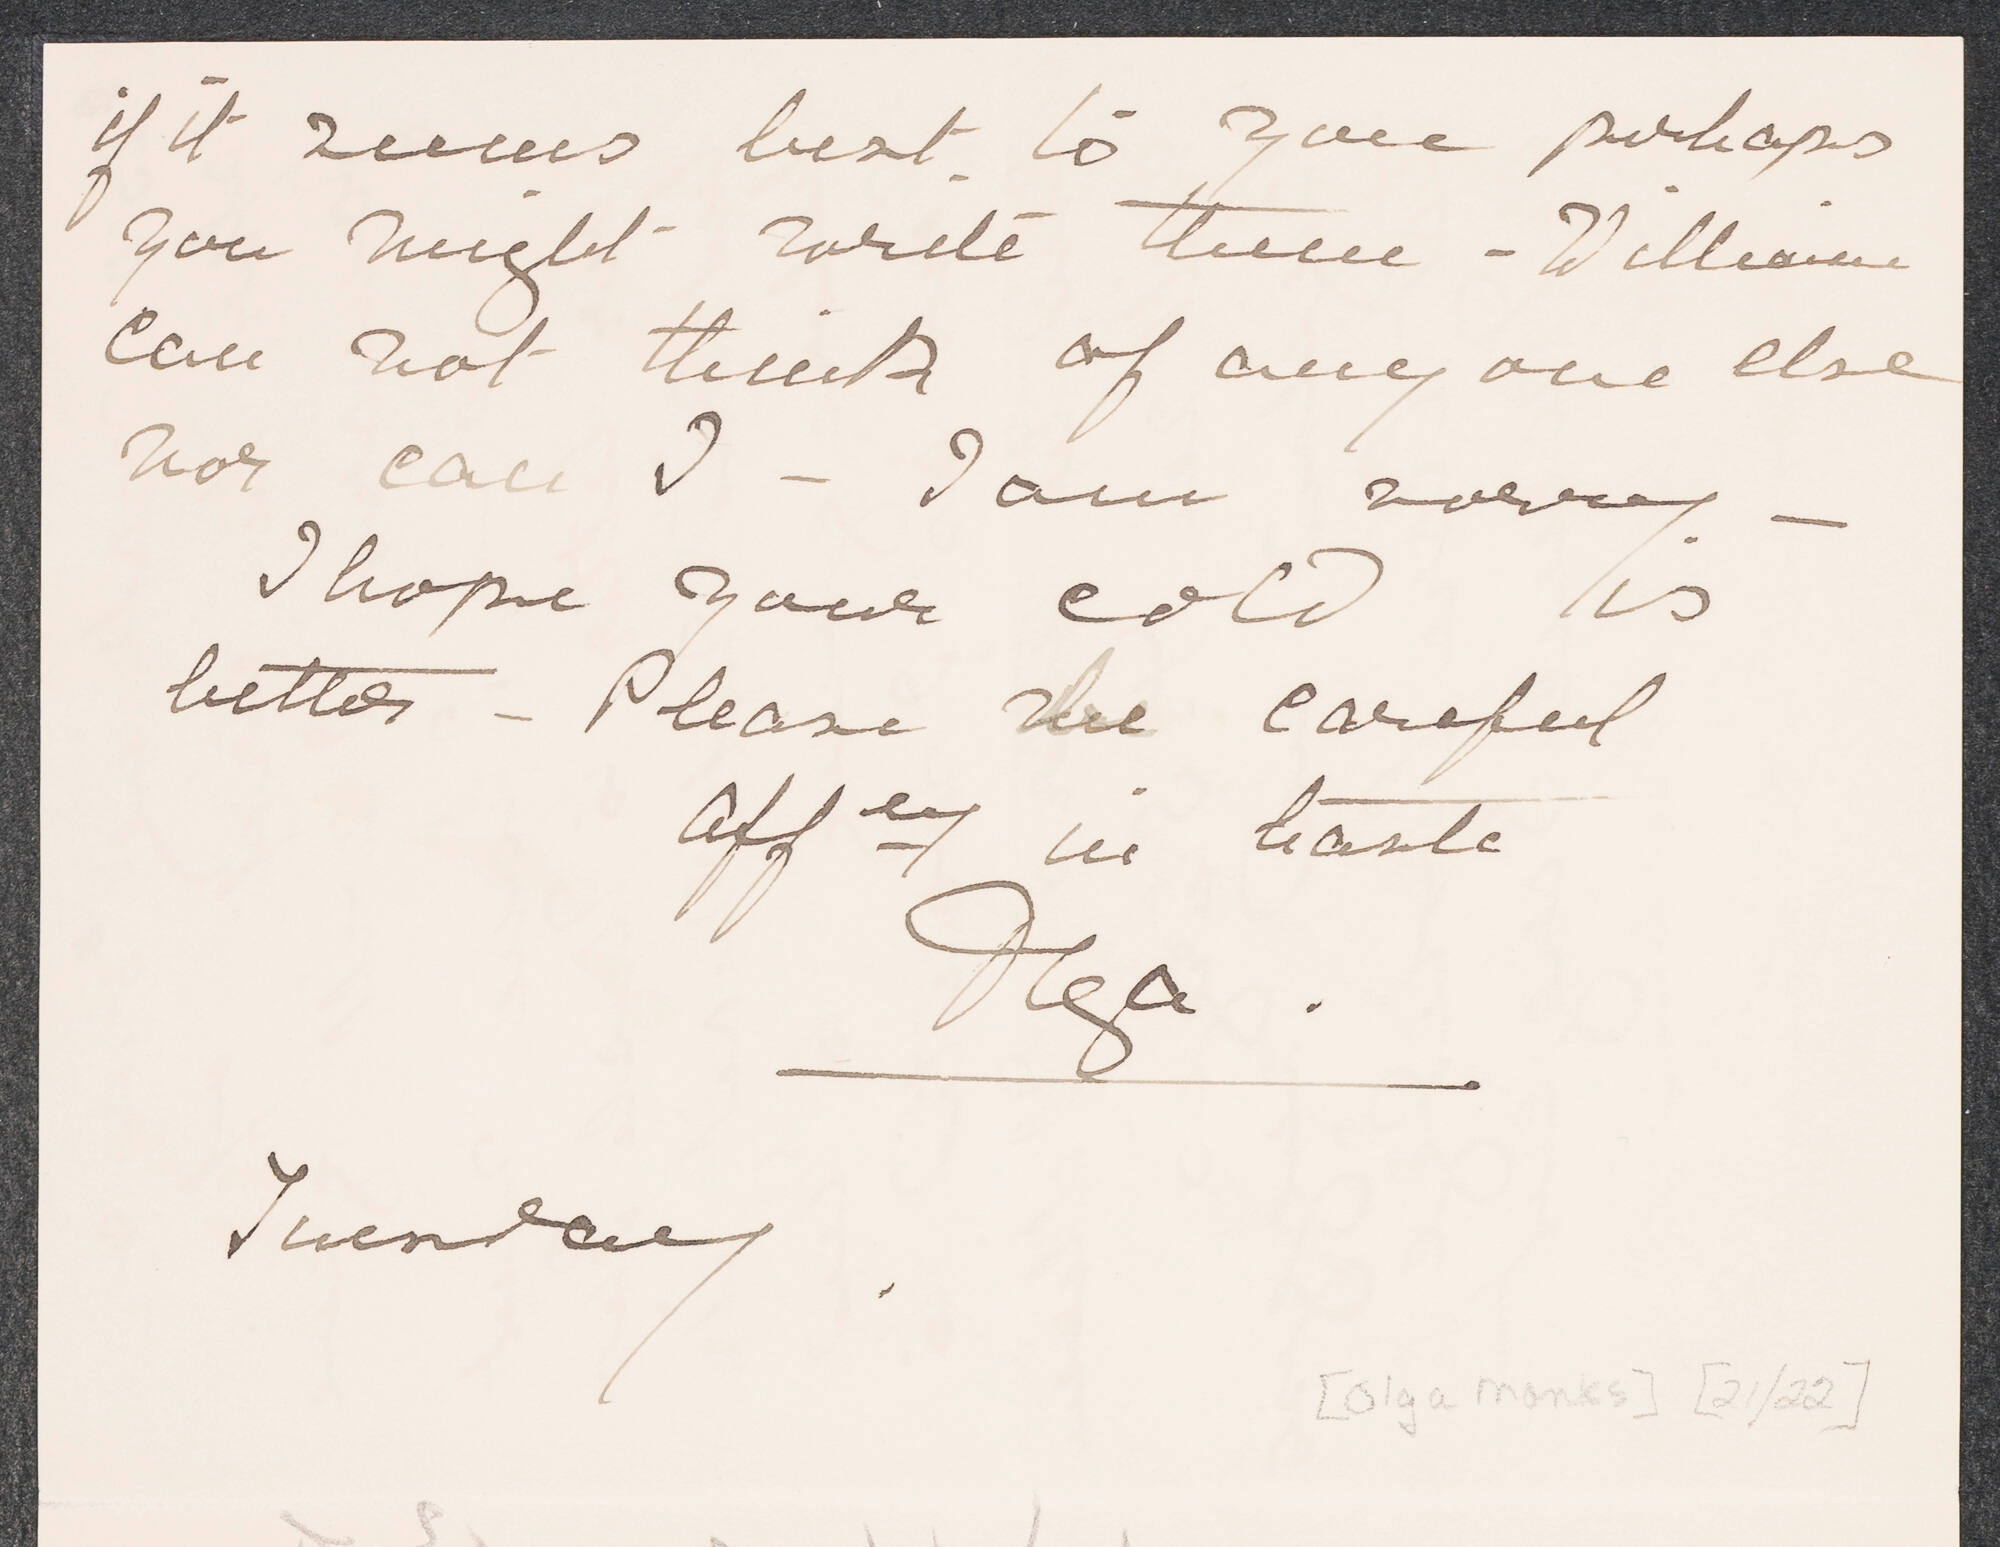 if it seems best to you perhaps
you might write them - William
can not think of anyone else
nor can I - I am sorry -
I hope your cold is
better - Please be careful
affly in haste
Olga.
Tuesday.
[Olga Monks] [21/22]